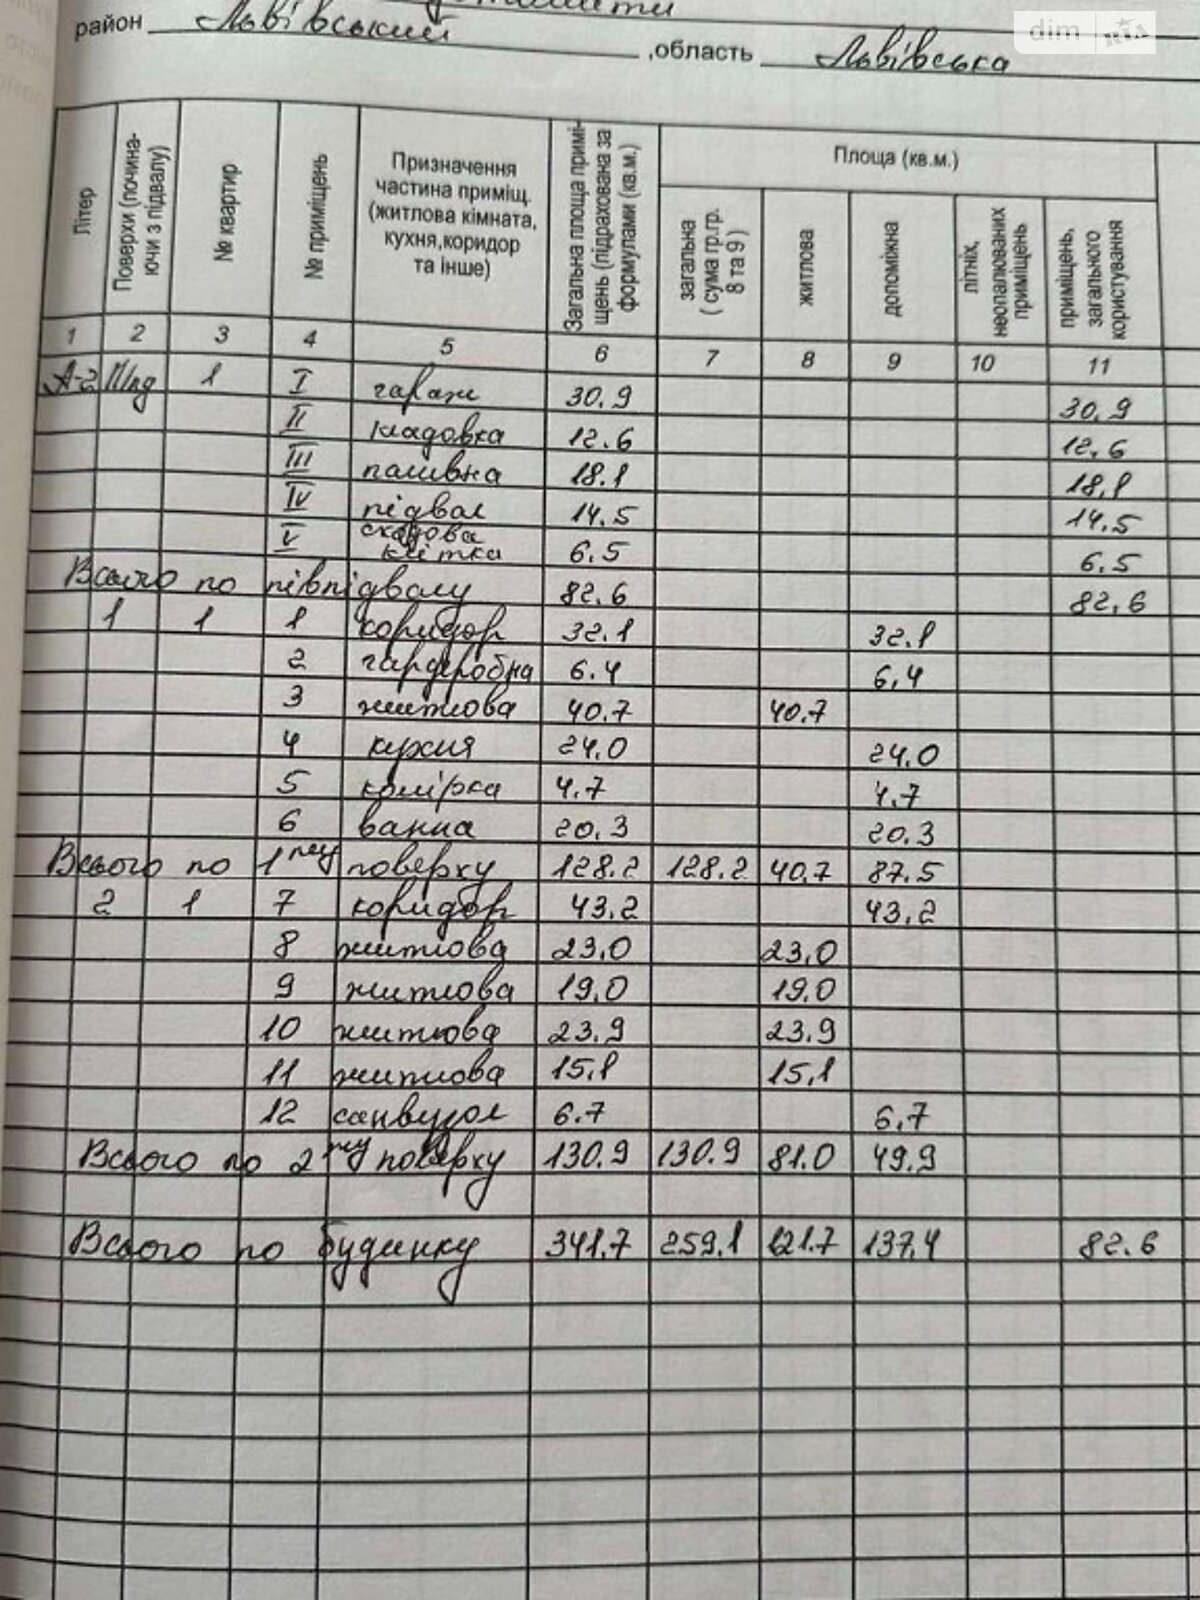 dim RIA
район Львівський ,область Львівська
Літер
Поверхи (почина-
ючи з підвалу)
№ квартир
№ приміщень
Призначення
частина приміщ.
(житлова кімната,
кухня,коридор
та інше)
Загальна площа примі-
щень (підрахована за
формулами (кв.м.)
Площа (кв.м.)
загальна
( сума гр.гр.
8 та 9 )
житлова
допоміжна
літніх,
неопалюваних
приміщень
приміщень,
загального
користування
1 2 3 4 5 6 7 8 9 10 11
А-2 П/пд 1 I гараж 30.9 30.9
II кладовка 12.6 12.6
III паливна 18.1 18.1
IV підвал 14.5 14.5
V сходова
клітка 6.5 6.5
Всього по півпідвалу 82.6 82.6
1 1 1 коридор 32.1 32.1
2 гардеробна 6.4 6.4
3 житлова 40.7 40.7
4 кухня 24.0 24.0
5 комірка 4.7 4.7
6 ванна 20.3 20.3
Всього по 1 поверху 128.2 128.2 40.7 87.5
2 1 7 коридор 43.2 43.2
8 житлова 23.0 23.0
9 житлова 19.0 19.0
10 житлова 23.9 23.9
11 житлова 15.1 15.1
12 санвузол 6.7 6.7
Всього по 2 поверху 130.9 130.9 81.0 49.9
Всього по будинку 341.7 259.1 121.7 137.4 82.6